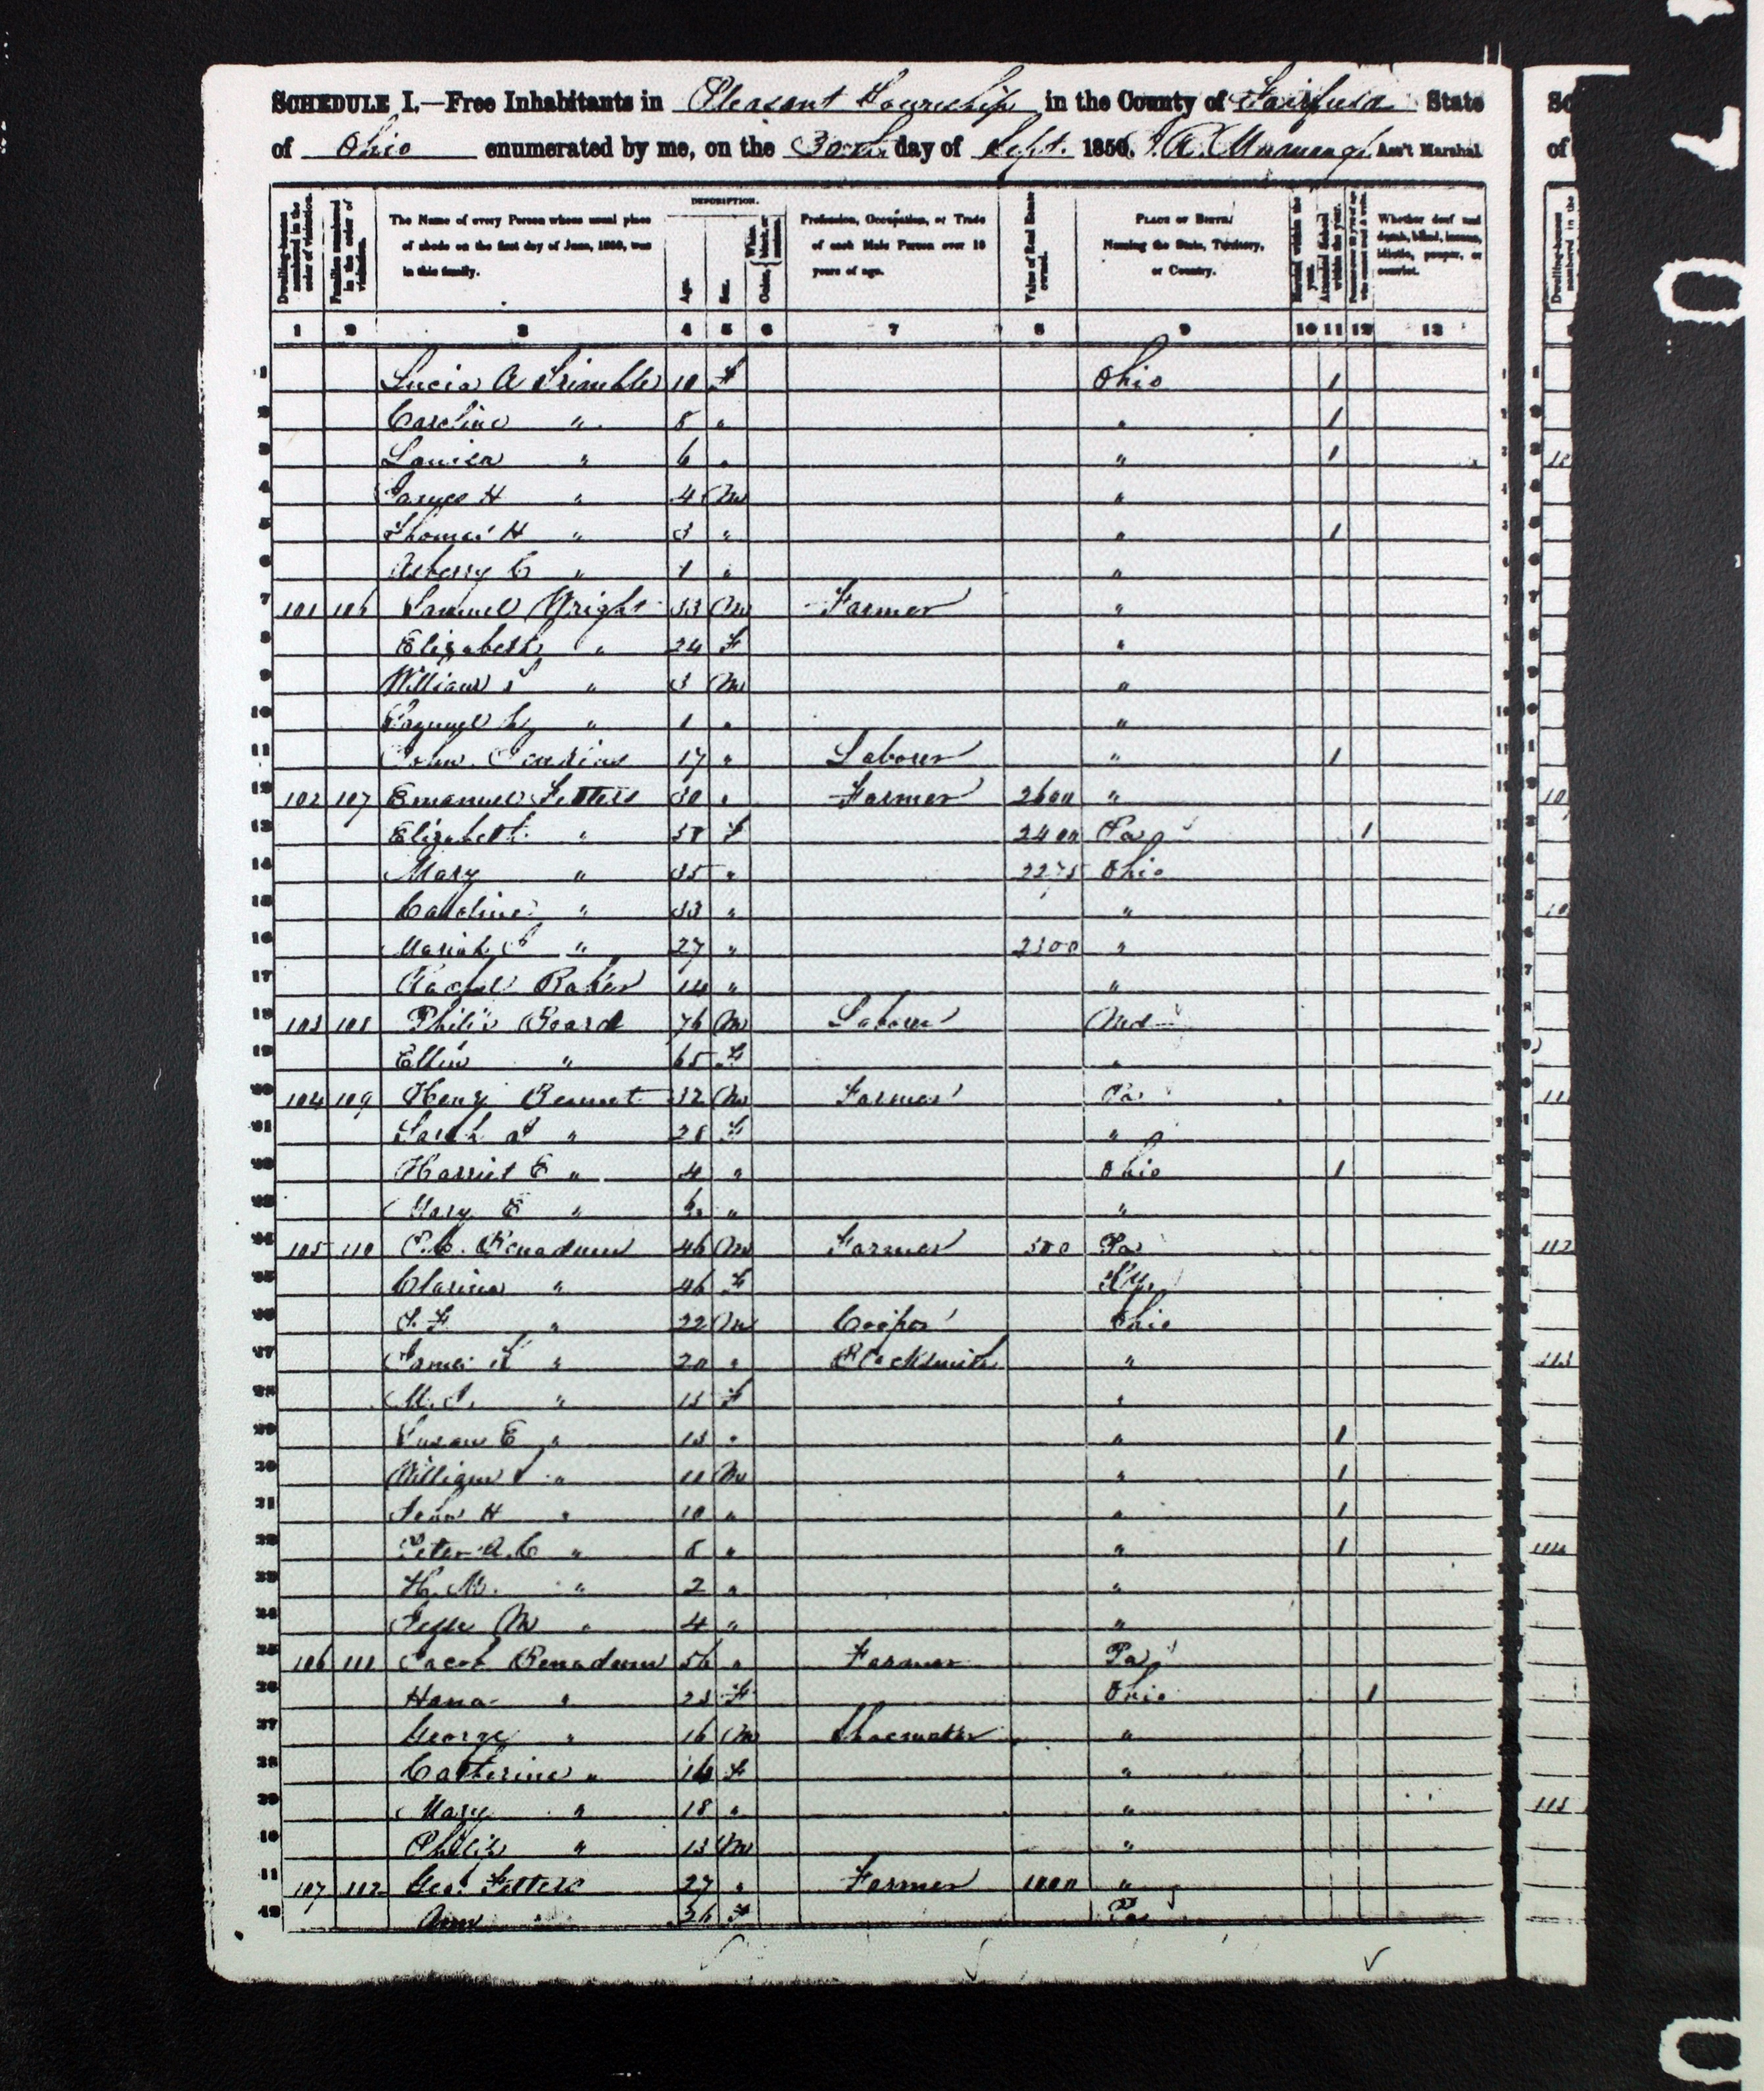 SCHEDULE I.—Free Inhabitants in Pleasant Township in the County of Fairfield State
of Ohio enumerated by me, on the 30th day of Sept. 1850. Ass't Marshal
Dwelling-houses numbered in the order of visitation.
Families numbered in the order of visitation.
The Name of every Person whose usual place of abode on the first day of June, 1850, was in this family.
DESCRIPTION.
Age.
Sex.
Color, { White, black, or mulatto.
Profession, Occupation, or Trade of each Male Person over 15 years of age.
Value of Real Estate owned.
PLACE OF BIRTH. Naming the State, Territory, or Country.
Married within the year.
Attended School within the year.
Persons over 20 y'rs of age who cannot read & write.
Whether deaf and dumb, blind, insane, idiotic, pauper, or convict.
1 2 3 4 5 6 7 8 9 10 11 12 13
1 Lucia A Trimble 10 F Ohio 1
2 Caroline " 8 " " 1
3 Louisa " 6 " " 1
4 James H " 4 M "
5 Thomas H " 3 " " 1
6 Asberry C " 1 " "
7 101 106 Samuel Wright 33 M Farmer "
8 Elizabeth " 24 F "
9 William " 3 M "
10 Samuel " 1 " "
11 John 17 " Laborer " 1
12 102 107 Emanuel Fetters 30 " Farmer 2600 "
13 Elizabeth " 58 F 2400 Pa 1
14 Mary " 35 " 2275 Ohio
15 Caroline " 33 " "
16 Mariah " 27 " 2300 "
17 Rachel Baker 14 " "
18 103 108 Philip Beard 76 M Laborer Md
19 Ellen " 65 F "
20 104 109 Henry Bennet 32 M Farmer Pa
21 Sarah " 28 F "
22 Harriet E " 4 " Ohio 1
23 Mary E " "
24 105 110 Benadum 46 M Farmer 500 Pa
25 Clarisa " 46 F Ky.
26 " 22 M Cooper Ohio
27 James " 20 " Blacksmith "
28 M. J. " 15 F "
29 Susan E " 13 " " 1
30 William " 11 M " 1
31 John H " 10 " " 1
32 Peter A. C " 8 " " 1
33 H. M. " 2 " "
34 Jesse M " 4 " "
35 106 111 Jacob Benadum 56 " Farmer Pa
36 Hana " 23 F Ohio 1
37 George " 16 M Shoemaker "
38 Catherine " F "
39 Mary " 18 " "
40 Philip " 13 M "
41 107 112 Geo. Fetters 27 " Farmer 1000 "
42 Ann 26 F Pa